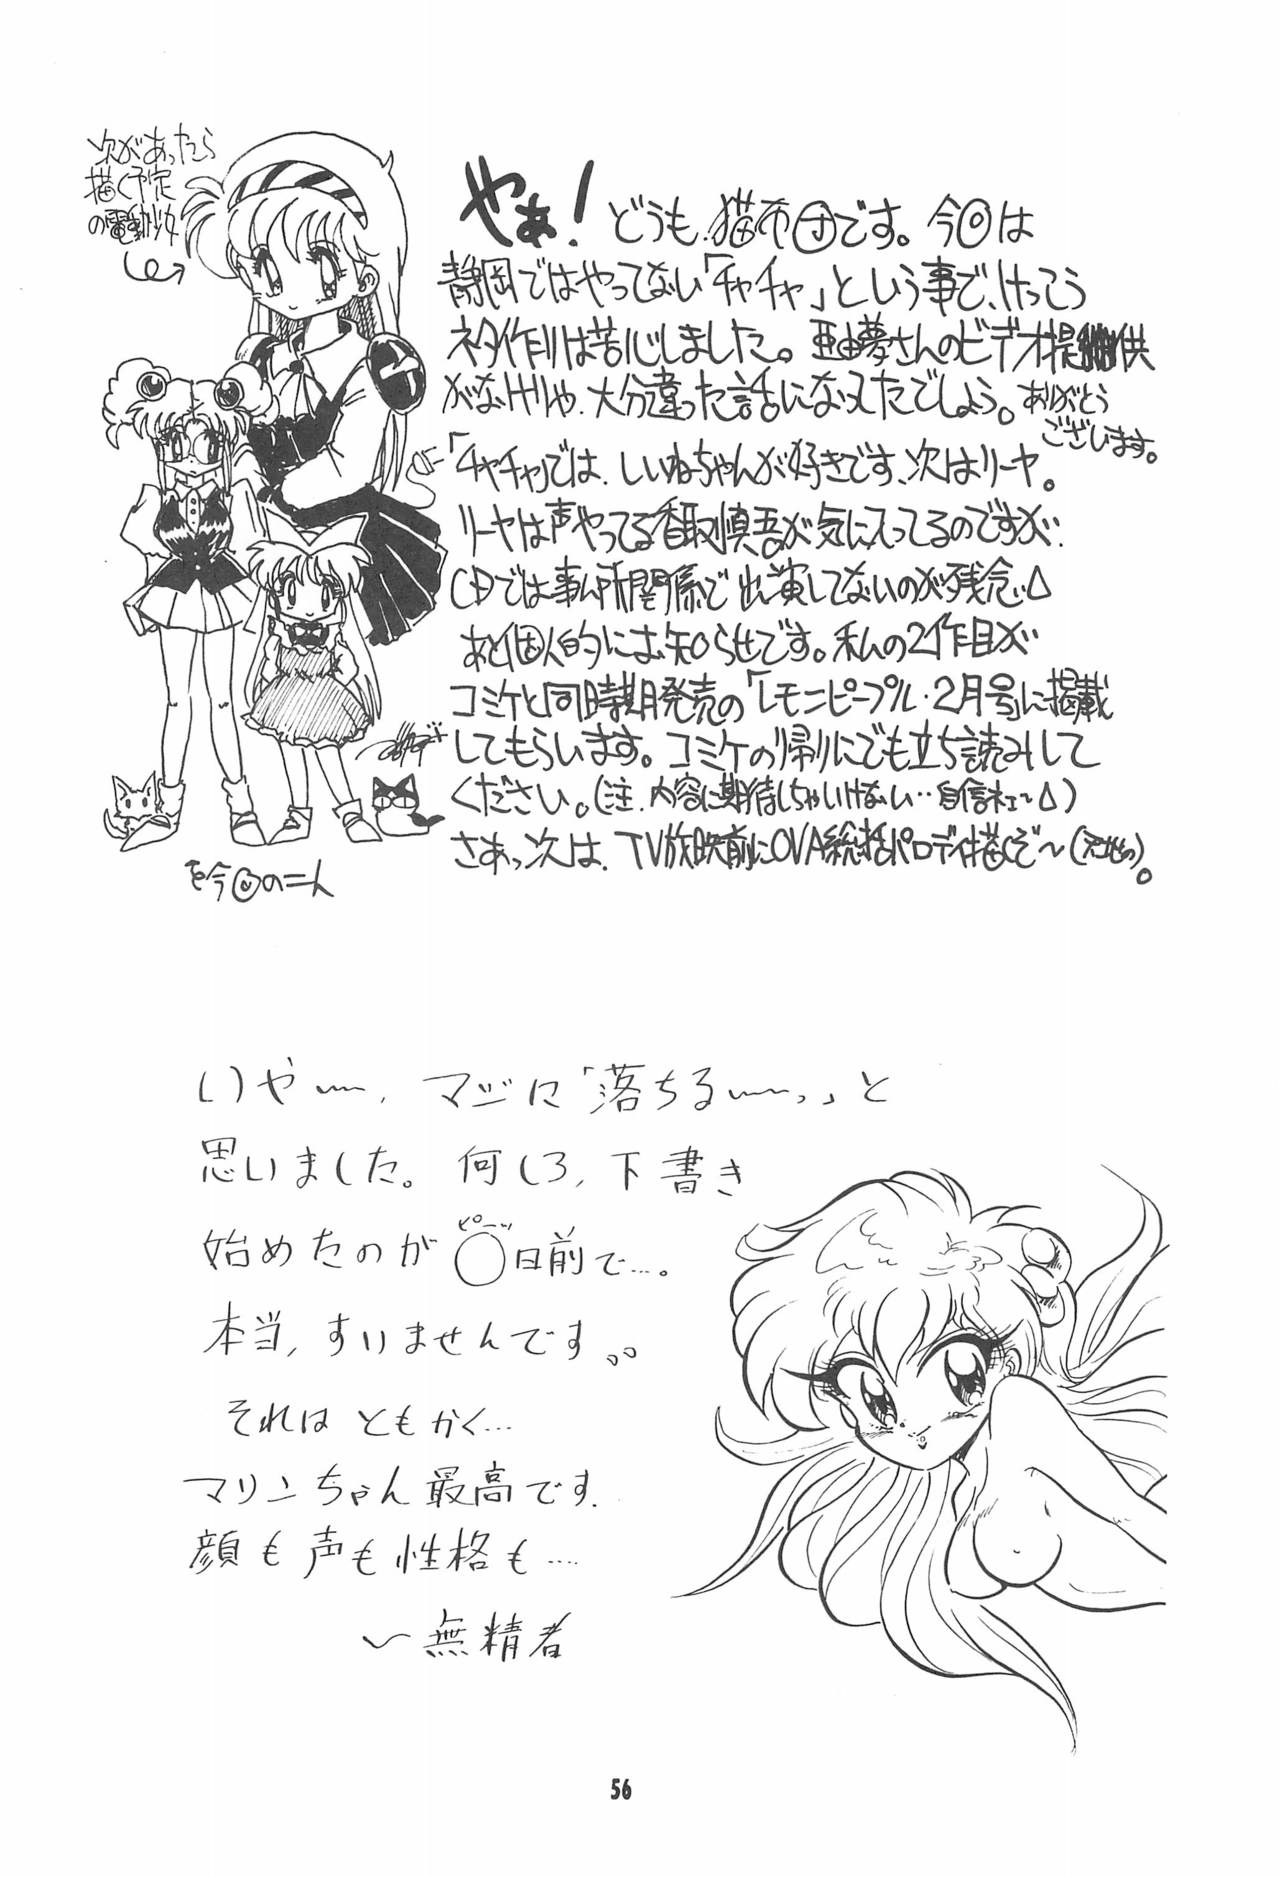 次があったら
描く予定
の電動少女
やぁ！どうも.猫布団です。今回は
静岡ではやってない「チャチャ」という事で、けっこう
ネタ作りは苦心しました。亜由夢さんのビデオ提供
がなけりゃ、大分違った話になってたでしょう。ありがとう
ございます。
「チャチャ」では、しいねちゃんが好きです、次はリーヤ。
リーヤは声やってる香取慎吾が気に入ってるのですが.
CDでは事ム所関係で出演してないのが残念△
あと個人的にお知らせです。私の2作目が
コミケと同時期発売の「レモンピープル・2月号」に掲載
してもらいます。コミケの帰りにでも立ち読みして
ください。(注.内容に期待しちゃいけない‥自信ネェ～△)
さあっ次は、TV放映前にOVA総括パロディ描くぞ～(天地の)。
を今回の二人
いやー、マジに「落ちるーっ」と
思いました。何しろ、下書き
始めたのが○日前で…。
ピーッ
本当、すいませんです。。
それはともかく…
マリンちゃん最高です.
顔も声も性格も‥‥
～無精者
56